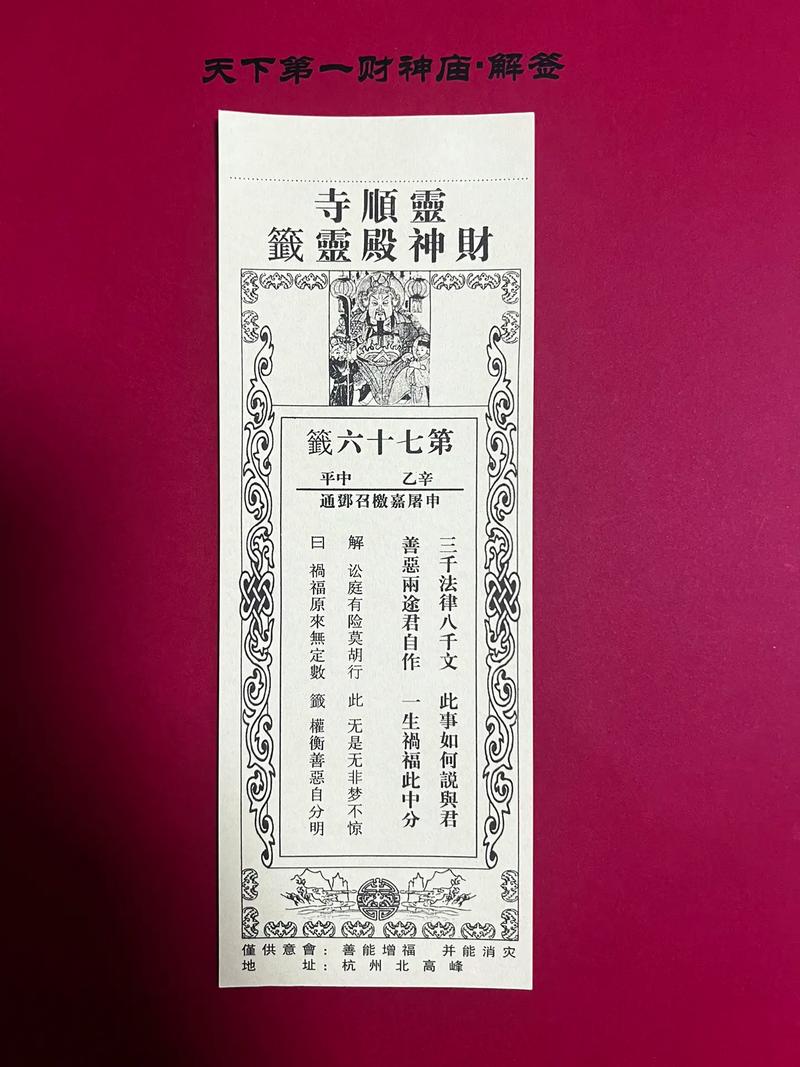 天下第一财神庙·解签
靈順寺
財神殿靈籤
第七十六籤
辛乙 中平
申屠嘉檄召鄧通
三千法律八千文 此事如何説與君
善惡兩途君自作 一生禍福此中分
解 讼庭有险莫胡行 此 无是无非梦不惊
曰 禍福原來無定數 籤 權衡善惡自分明
僅供意會：善能增福 并能消灾
地址：杭州北高峰